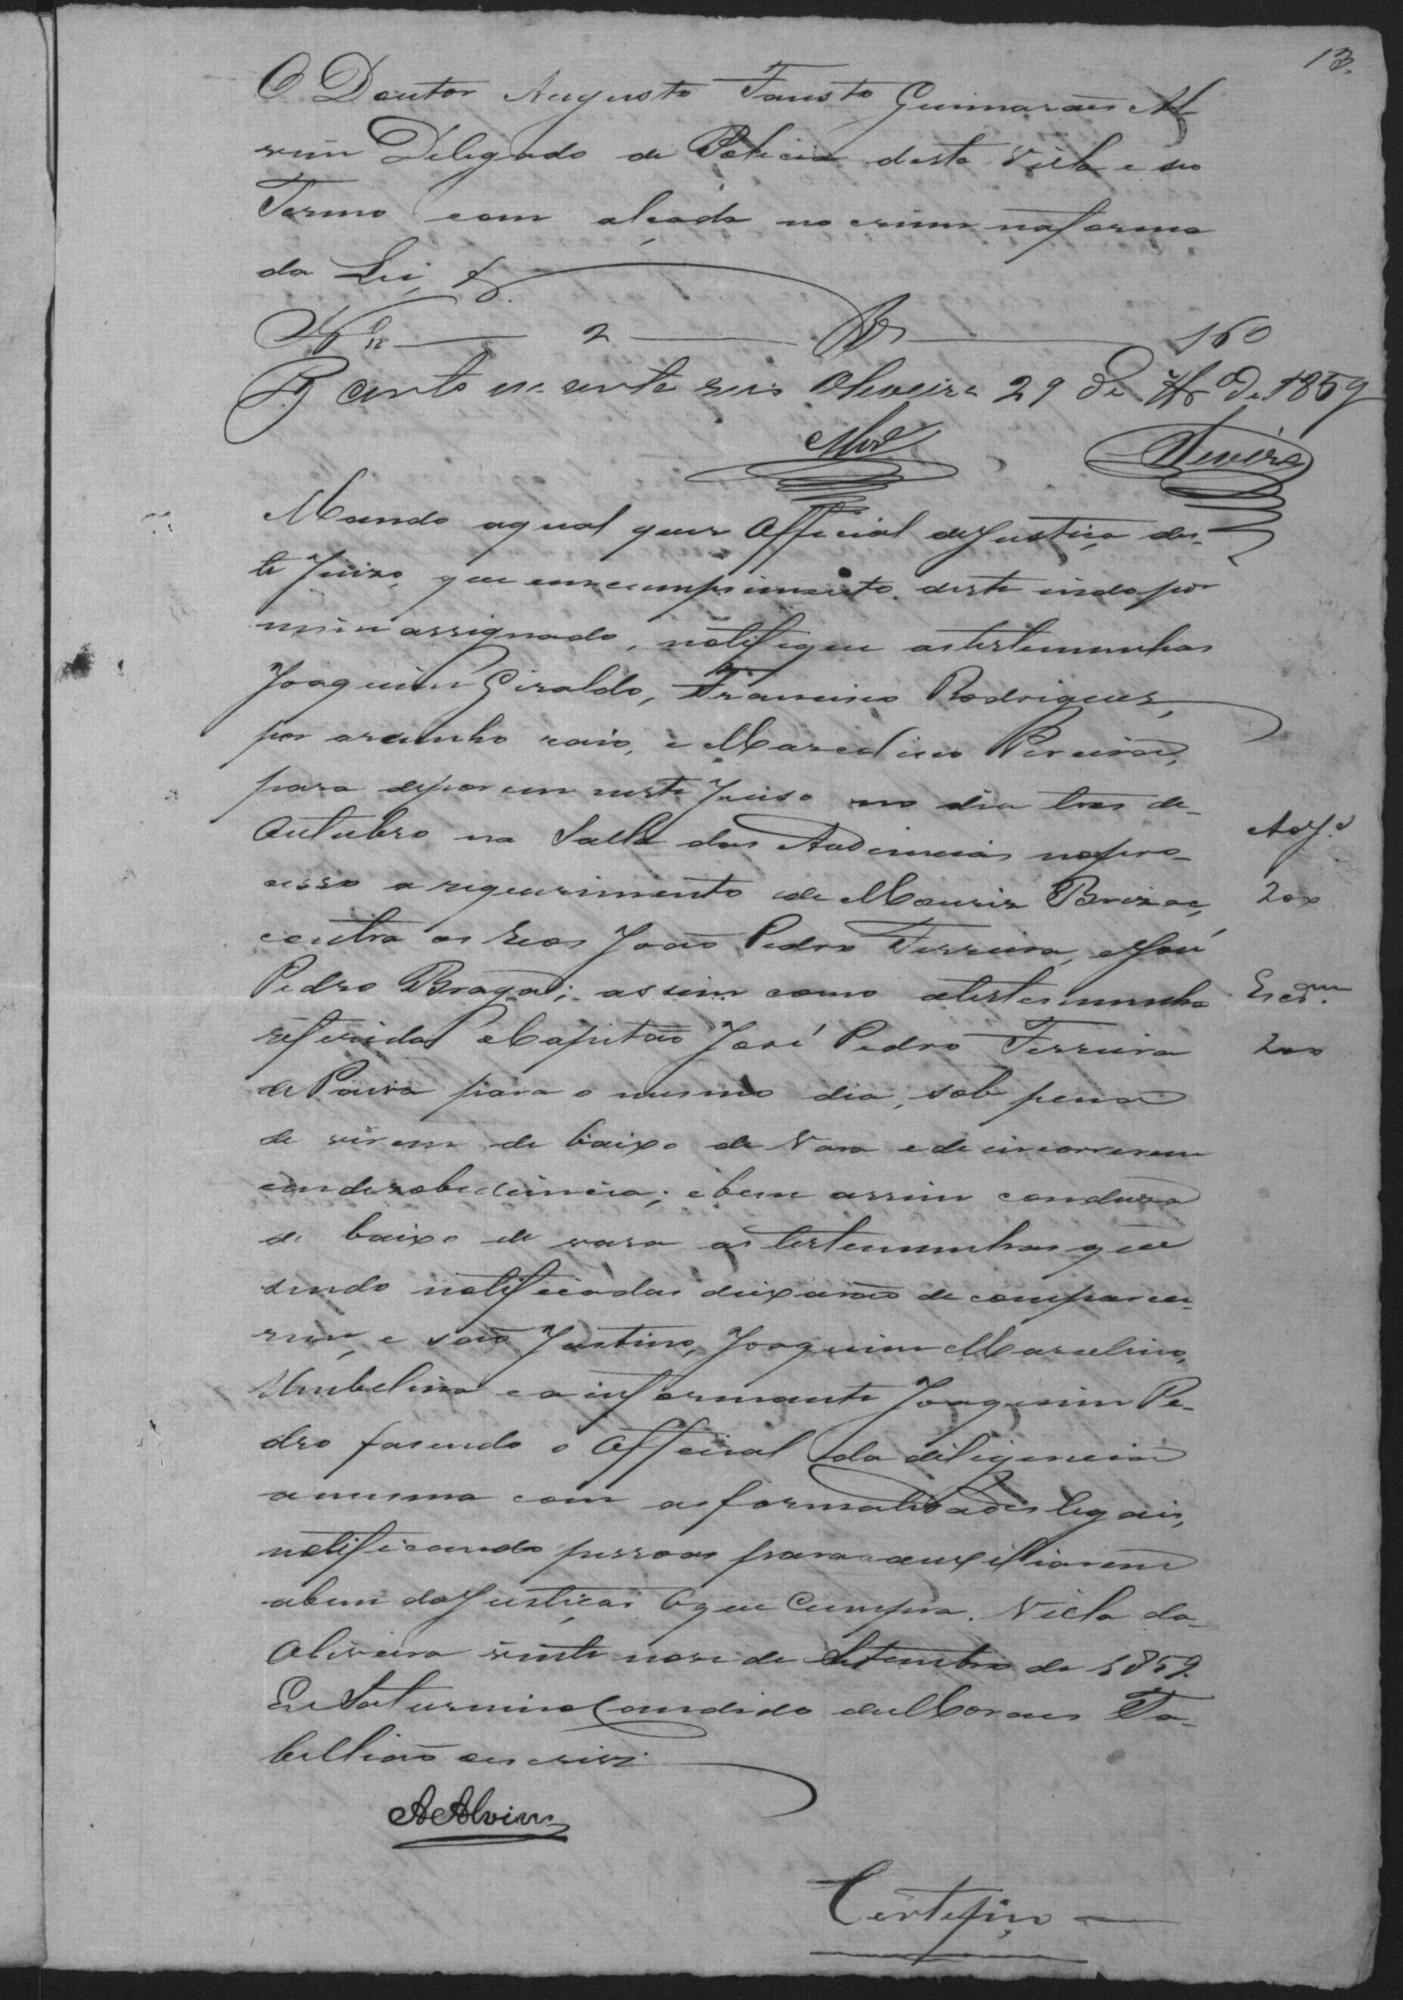 13.
O Doutor Augusto Fausto Guimarães Al-
vim Delegado de Policia desta Villa e seo
Termo com alçada no crime na forma
da Lei, &.
Nº 2 Rs 160
Pg cento e secenta reis Oliveira 29 de 7br.º de 1859
Oliveira
Mando aqual quer Official deJustiça des-
te Juizo, que emcumprimento deste indo por
mim assignado, notifique astestemunhas
Joaquim Giraldo, Francisco Rodrigues,
por arcunho raio, e Marcelino Pereira,
para deporem neste Juiso no dia tres de-
Outubro na Salla das Audiencias nopro-
cesso a requerimento de Mouriz Brizac,
contra os Reos João Pedro Ferreira, eJosé
Pedro Braga; assim como atestemunha
referida oCapitão José Pedro Ferreira
de Paiva para o mesmo dia, sob pena
de virem de baixo de Vara e de incorrerem
emdesobediencia; ebem assim conduza
de baixo de vara as testemunhas que
sendo notificadas deixarão de comparece-
rem, e são Justino, Joaquim Marcelino,
Umbelina e a informante Joaquim Pe-
dro fasendo o Official da diligencia
a mesma com as formalidades legais,
notificando pessoas para auxiliarem
abem daJustiça. Oque Cumpra. Villa da
Oliveira vinte nove de Setembro de 1859.
Eu Saturnino Candido deMoraes Ta-
bellião escrivi.
AAlvim
Certefiço
Adj.º
200
Escr.m
200